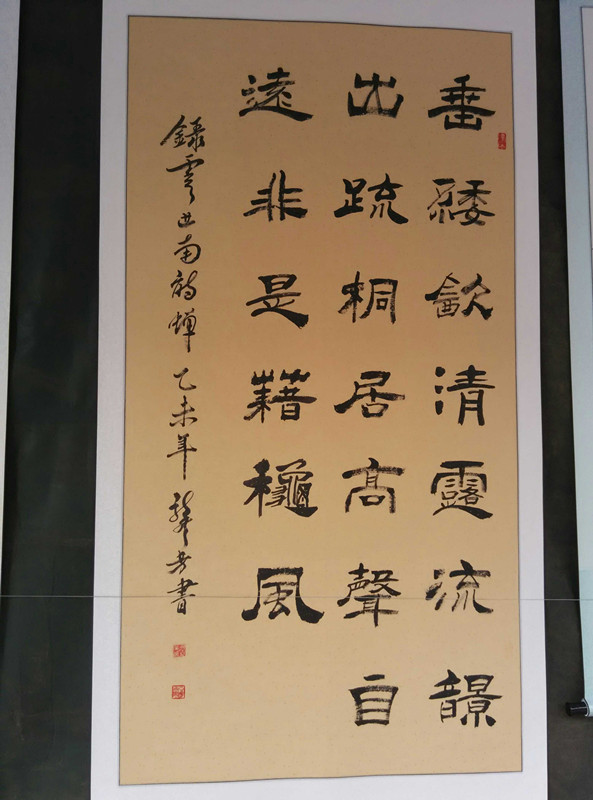 垂緌㱃清露流響
出疏桐居高聲自
遠非是藉龝風
錄虞世南詩蟬 乙未年 書